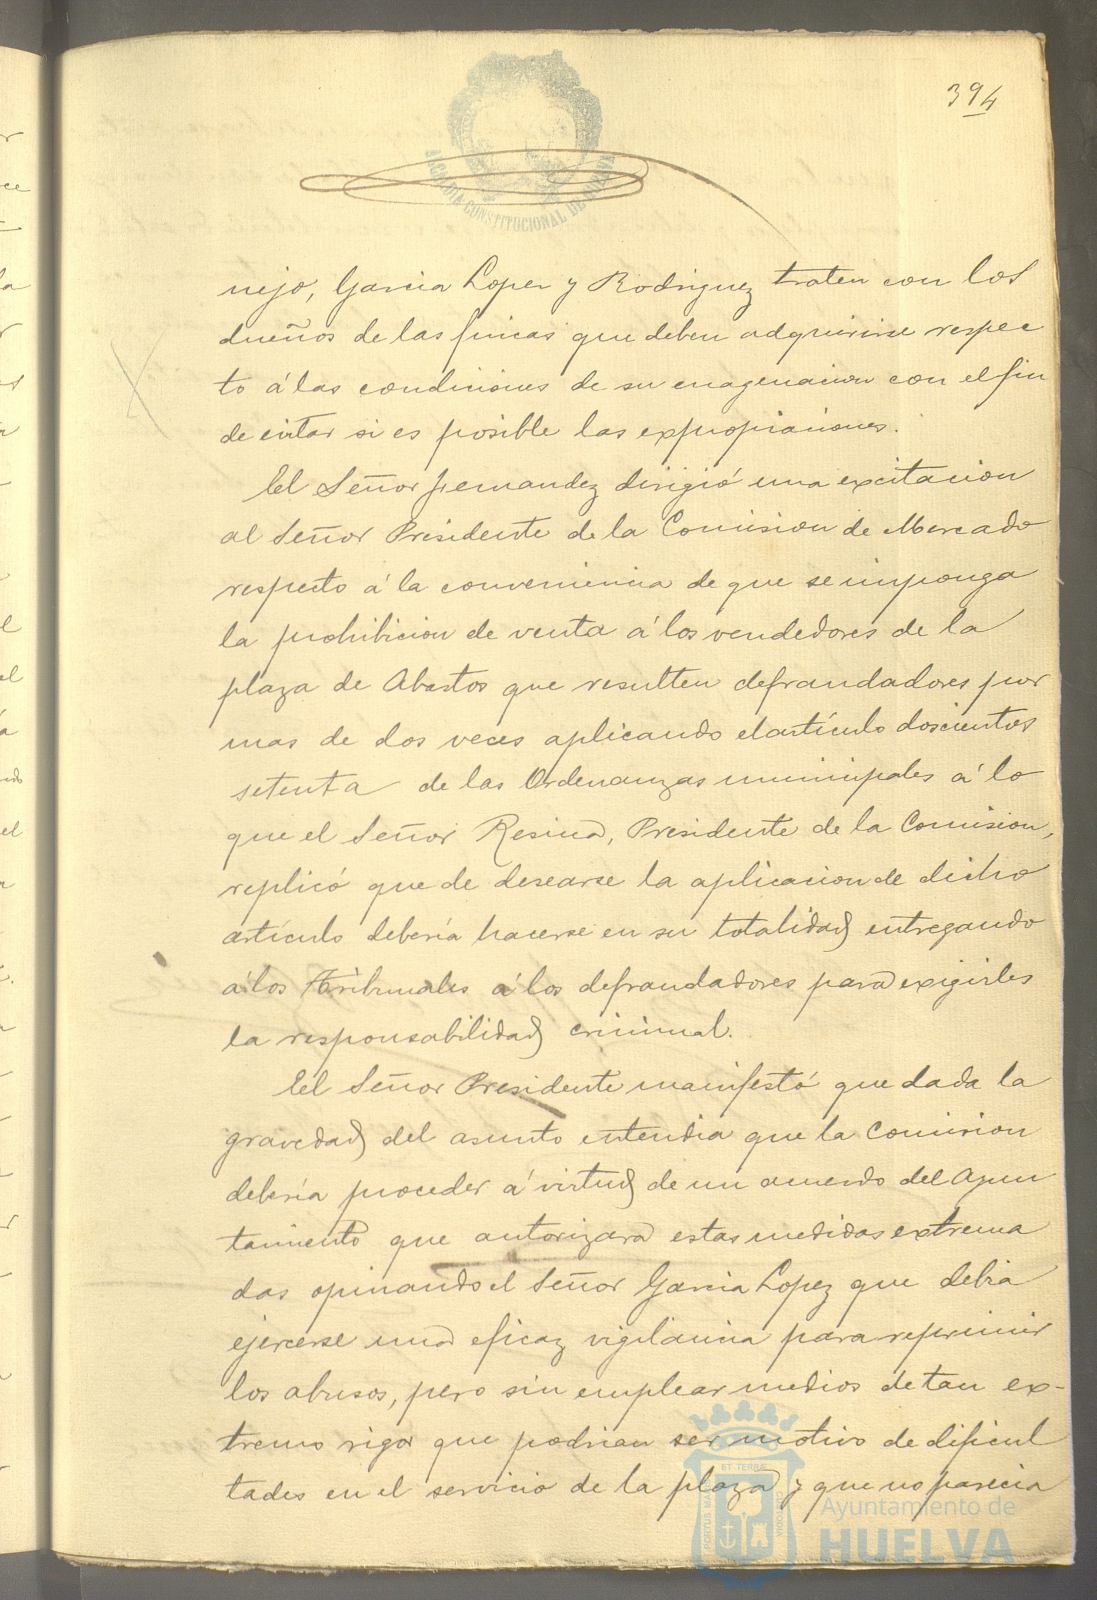 394
ALCALDIA CONSTITUCIONAL DE HUELVA
nejo, Garcia Lopez y Rodriguez traten con los
dueños de las fincas que deben adquirirse respec
to á las condiciones de su enagenacion con el fin
de evitar si es posible las expropiaciones.
El Señor Fernandez dirigió una excitacion
al Señor Presidente de la Comision de Mercado
respecto á la conveniencia de que se imponga
la prohibicion de venta á los vendedores de la
plaza de Abastos que resulten defraudadores por
mas de dos veces aplicando el artículo doscientos
setenta de las Ordenanzas municipales á lo
que el Señor Resina, Presidente de la Comision,
replicó que de desearse la aplicacion de dicho
artículo debería hacerse en su totalidad entregando
á los Tribunales á los defraudadores para exigirles
la responsabilidad criminal.
El Señor Presidente manifestó que dada la
gravedad del asunto entendia que la Comision
debería proceder á virtud de un acuerdo del Ayun
tamiento que autorizara estas medidas extrema
das opinando el Señor Garcia Lopez que debia
ejercerse una eficaz vigilancia para reprimir
los abusos, pero sin emplear medios de tan ex-
tremo rigor que podrian ser motivo de dificul
tades en el servicio de la plaza y que no parecia
PORTUS MARIS ET TERRAE CUSTODIA
Ayuntamiento de
HUELVA